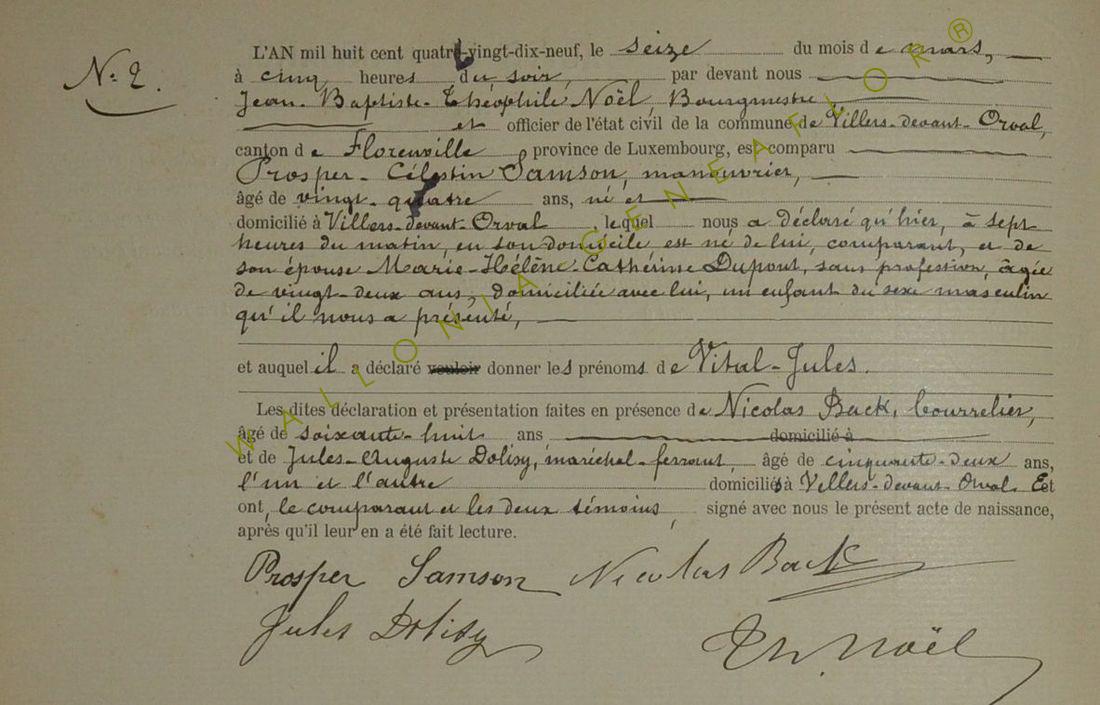 N° 2.
L'AN mil huit cent quatre-vingt-dix-neuf, le seize du mois de mars,
à cinq heures du soir, par devant nous
Jean-Baptiste-Théophile Noël, Bourgmestre,
et officier de l'état civil de la commune de Villers-devant-Orval,
canton de Florenville province de Luxembourg, est comparu
Prosper-Célestin Samson, manouvrier,
âgé de vingt-quatre ans, né et
domicilié à Villers-devant-Orval, lequel nous a déclaré qu'hier, à sept
heures du matin, en son domicile est né de lui, comparant, et de
son épouse Marie-Hélène-Cathérine Dupont, sans profession, âgée
de vingt-deux ans, domiciliée avec lui, un enfant du sexe masculin
qu'il nous a présenté,
et auquel il a déclaré vouloir donner les prénoms de Vital-Jules.
Les dites déclaration et présentation faites en présence de Nicolas Back, bourrelier,
âgé de soixante-huit ans domicilié à
et de Jules-Auguste Dolisy, maréchal-ferrant, âgé de cinquante-deux ans,
l'un et l'autre domiciliés à Villers-devant-Orval. Et
ont, le comparant et les deux témoins, signé avec nous le présent acte de naissance,
après qu'il leur en a été fait lecture.
Prosper Samson Nicolas Back
Jules Dolisy Th. Noël
WALLONIA GENEAFLOR®